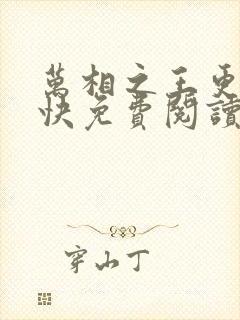 萬相之王更
快免費閱讀
穿山丁